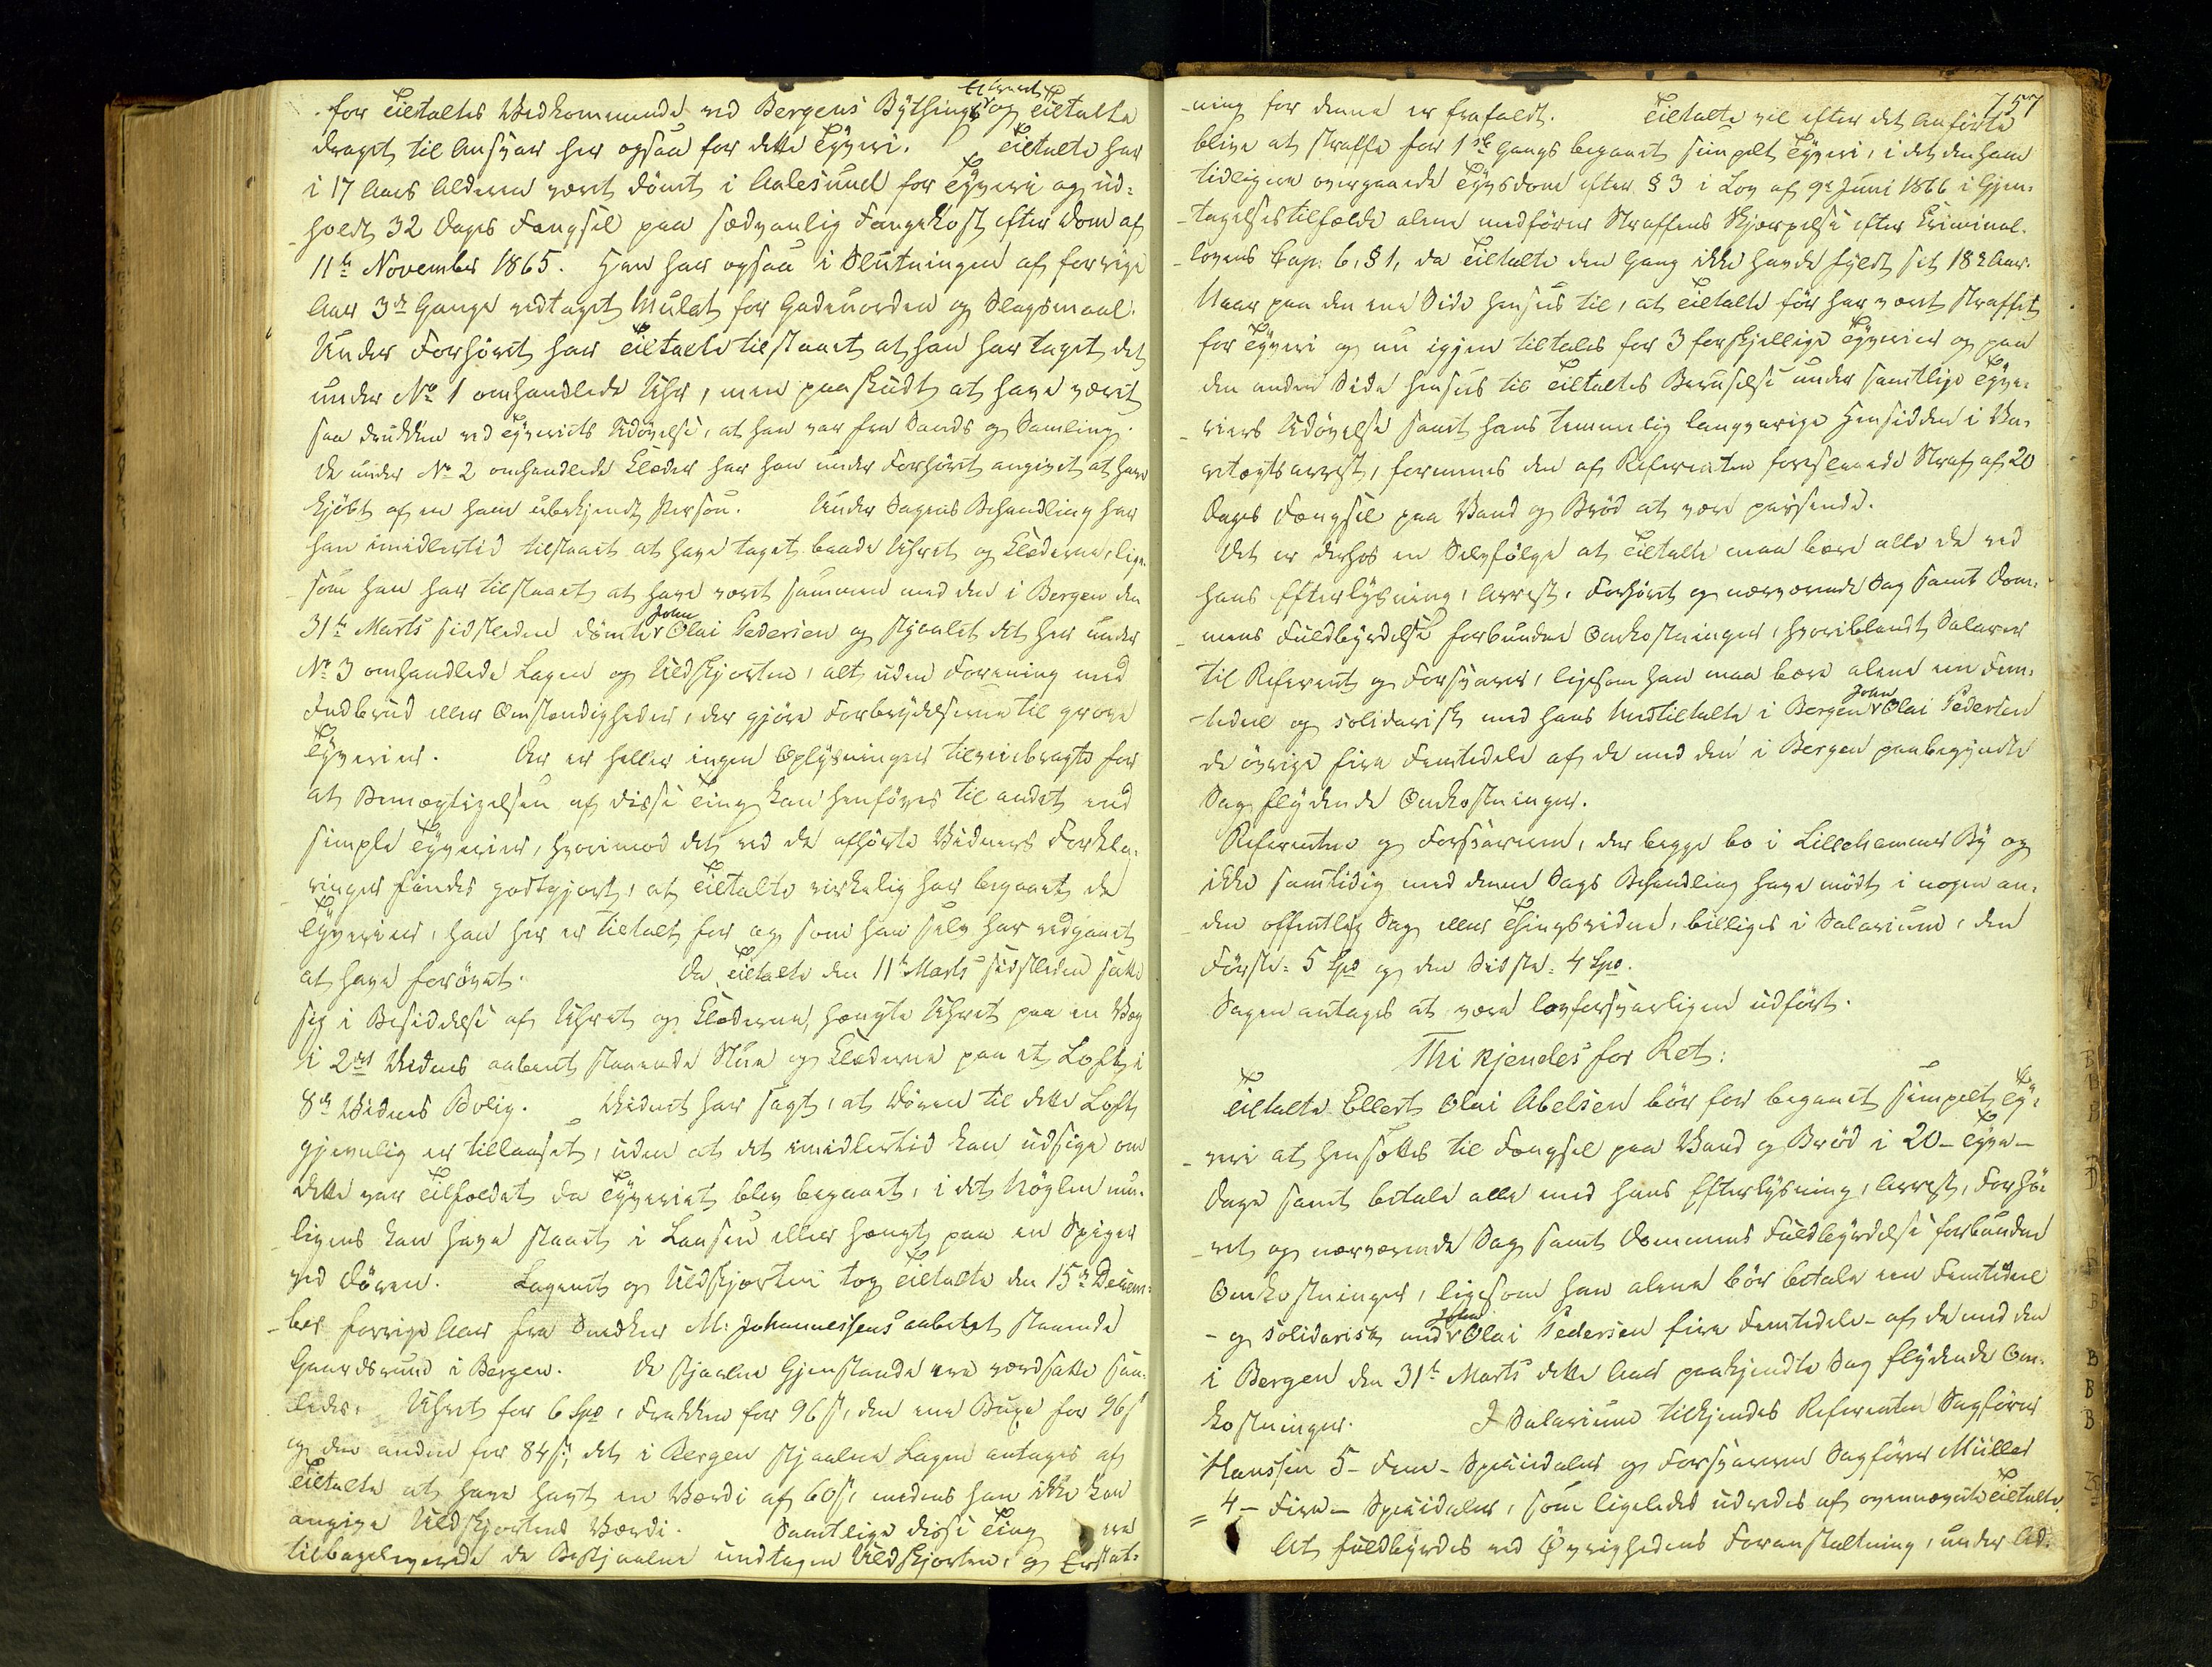 for Tiltaltes Vedkommende ved Bergens Bything erhvert og Tiltalte
draget til Ansvar her ogsaa for dette Tyveri. Tiltalte har
i 17 Aars Alderen været dömt i Aalesund for Tyveri og ud-
holdt 32 Dages Fængsel paa sædvanlig Fangekost efter Dom af
11te November 1865. Han har ogsaa i Slutningen af forrige
Aar 3de Gange vedtaget Mulct for Gadeuorden og Slagsmaal.
Under Forhöret har Tiltalte tilstaaet at han har taget det
under No 1 omhandlede Uhr, men paaskudt at have været
saa drukken ved Tyveriets Udövelse, at han var fra Sands og Samling.
De under No 2 omhandlede Klæder har han under Forhöret angivet at have
kjöbt af en ham ubekjendt Person. Under Sagens Behandling har
han imidlertid tilstaaet at have taget baade Uhret og Klæderne, lige-
som han har tilstaaet at have været sammen med den i Bergen den
31te Marts sidstleden dömte John Olai Pedersen og stjaalet det her under
No 3 omhandlede Lagen og Uldskjorten, alt uden Forening med
Indbrud eller Omstændigheder, der gjöre Forbrydelserne til grove
Tyverier. Der er heller ingen Oplysninger tilveiebragte for
at Bemægtigelsen af disse Ting kan henföres til andet end
simple Tyverier, hvorimod det ved de afhörte Vidners Forkla-
ringer findes godtgjort, at Tiltalte virkelig har begaaet de
Tyverier, han her er tiltalt for og som han selv har vedgaaet
at have forövet. Da Tiltalte den 11te Marts sidstleden satte
sig i Besiddelse af Uhret og Klæderne, hængte Uhret paa en Væg
i 2det Vidnes aabent staaende Stue og Klæderne paa et Loft i
8de Vidnes Bolig. Vidnet har sagt, at Dören til dette Loft
gjevnlig er tillaaset, uden at det imidlertid kan udsige om
dette var Tilfældet da Tyveriet blev begaaet, i det Nöglen mu-
ligens kan have staaet i Laasen eller hængt paa en Spiger
ved Dören. Lagenet og Uldskjorten tog Tiltalte den 15de Decem-
ber forrige Aar fra Snedker M. Johannessens aabent staaende
Gaardsrum i Bergen. De stjaalne Gjenstande ere værdsatte saa-
ledes: Uhret for 6 Spd, Frakken for 96 s, den ene Buxe for 96 s
og den anden for 84 s; det i Bergen stjaalne Lagen antages af
Tiltalte at have havt en Værdi af 60 s, medens han ikke kan
angive Uldskjortens Værdi. Samtlige disse Ting ere
tilbageleverede de Bestjaalne undtagen Uldskjorten, og Erstat-
757
ning for denne er frafaldt. Tiltalte vil efter det Anförte
blive at straffe for 1ste Gangs begaaet simpelt Tyveri, i det den ham
tidligere overgaaede Tyvsdom efter § 3 i Lov af 9de Juni 1866 i Gjen-
tagelsestilfælde alene medförer Straffens Skjærpelse efter Criminal-
lovens Cap. 6, § 1, da Tiltalte den Gang ikke havde fyldt sit 18de Aar.
Naar paa den ene Side hensees til, at Tiltalte för har været straffet
for Tyveri og nu igjen tiltales for 3 forskjellige Tyverier og paa
den anden Side hensees til Tiltaltes Beruselse under samtlige Tyve-
riers Udövelse samt hans temmelig langvarige Hensidden i Va-
retægtsarrest, formenes den af Referenten foreslaaede Straf af 20
Dages Fængsel paa Vand og Bröd at være passende.
Det er derhos en Selvfölge at Tiltalte maa bære alle de ved
hans Efterlysning, Arrest, Forhöret og nærværende Sag samt Dom-
mens Fuldbyrdelse forbundne Omkostninger, hvoriblandt Salarier
til Referent og Forsvarer, ligesom han maa bære alene een Fem-
tedeel og solidarisk med hans Medtiltalte i Bergen John Olai Pedersen
de övrige fire Femtedele af de med den i Bergen paabegyndte
Sag flydende Omkostninger.
Referenten og Forsvareren, der begge bo i Lillehammer By og
ikke samtidig med denne Sags Behandling have mödt i nogen an-
den offentlig Sag eller Thingsvidne, billiges i Salarium, den
Förste: 5 Spd og den Sidste: 4 Spd.
Sagen antages at være lovforsvarligen udfört.
Thi kjendes for Ret:
Tiltalte Ellert Olai Abelsen bör for begaaet simpelt Ty-
veri at hensættes til Fængsel paa Vand og Bröd i 20 - Tyve -
Dage samt betale alle med hans Efterlysning, Arrest, Forhö-
ret og nærværende Sag samt Dommens Fuldbyrdelse forbundne
Omkostninger, ligesom han alene bör betale een Femtedeel
- og solidarisk med John Olai Pedersen fire Femtedele - af de med den
i Bergen den 31te Marts dette Aar paakjendte Sag flydende Om-
kostninger. I Salarium tilkjendes Referenten Sagförer
Hanssen 5 - Fem - Speciedaler og Forsvareren Sagförer Müller
4 - Fire - Speciedaler, som ligeledes udredes af ovennævnte Tiltalte.
At fuldbyrdes ved Øvrighedens Foranstaltning, under Ad-